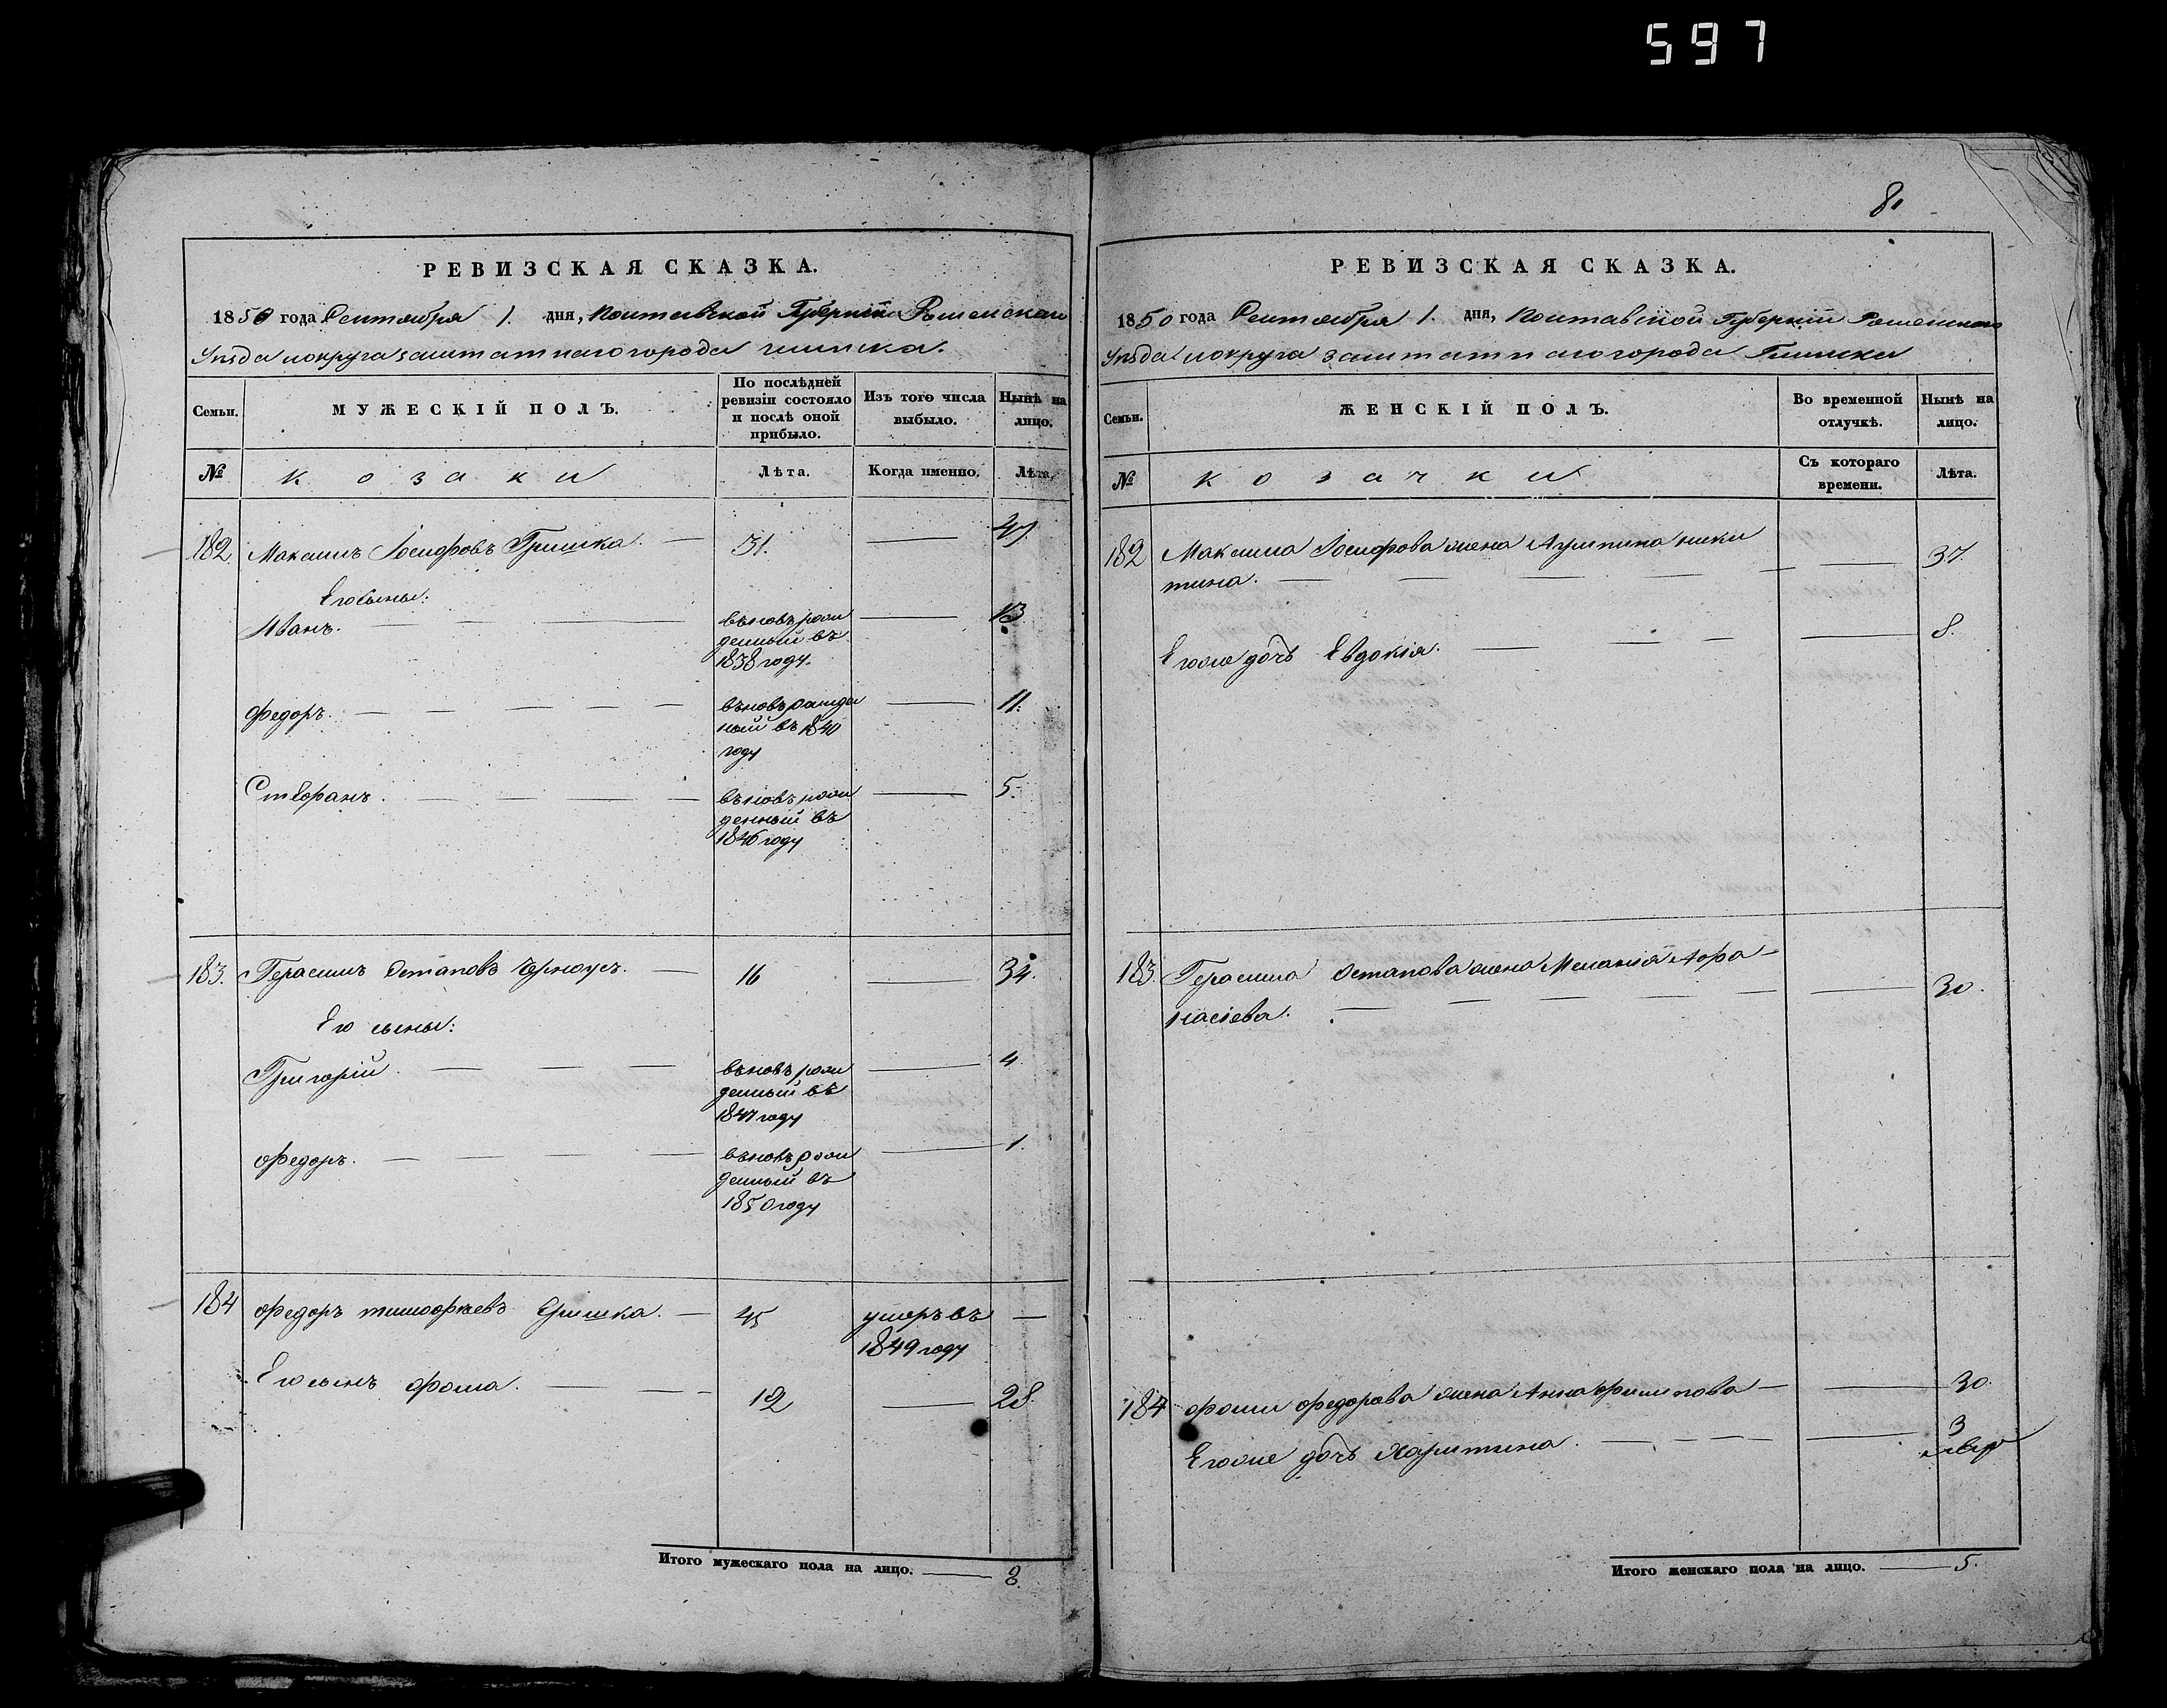 597
8.
РЕВИЗСКАЯ СКАЗКА.
1850 года Сентября 1. дня, Полтавской Губерніи Роменскаго
Уезда и округа заштатнаго города Глинска.
Семьи. МУЖЕСКІЙ ПОЛЪ. По послѣдней ревизіи состояло и послѣ оной прибыло. Изъ того числа выбыло. Нынѣ на лицо.
№ козаки Лѣта. Когда именно. Лѣта.
182. Максимъ Іосифовъ Гришка. — 31. — 47.
Его сыны:
Иванъ. — вновь рож — 13.
денный въ
1838 году.
Федоръ. — вновь рожде — 11.
ный въ 1840
году
Стефанъ. — вновь рож — 5.
денный въ
1846 году
183. Герасимъ Остаповъ Черноусъ. — 16 — 34.
Его сыны:
Григорій. — вновь рож — 4.
денный въ
1847 году
Федоръ. — вновь рож — 1.
денный въ
1850 году
184 Федоръ Тимофѣевъ Гришка. — 45 умеръ въ —
1849 году
Его сынъ Фома. — 12 — 28.
Итого мужескаго пола на лицо. — 8.
РЕВИЗСКАЯ СКАЗКА.
1850 года Сентября 1. дня, Полтавской Губерніи Роменскаго
Уезда и округа заштатнаго города Глинска
Семьи. ЖЕНСКІЙ ПОЛЪ. Во временной отлучкѣ. Нынѣ на лицо.
№ козачки Съ котораго времени. Лѣта.
182 Максима Іосифова жена Ники
тина. — 37.
Его же дочь Евдокія. — 8.
183. Герасима Остапова жена Меланія Афа-
насіева. — 30.
184 Фомы Федорова жена Анна Филипова — 30.
Его же дочь Харитина. — 3
Итого женскаго пола на лицо. — 5.